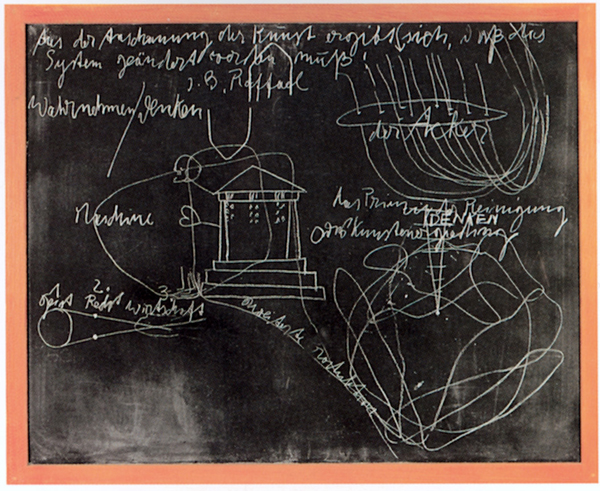 Aus der Anschauung der Kunst ergibt sich, daß das
System geändert werden muß!
z. B. Raffael
Wahrnehmen, denken
der Acker
Maschine
das Prinzip der Reinigung
DENKEN
1. 2. 3.
Geist Recht Wirtschaft